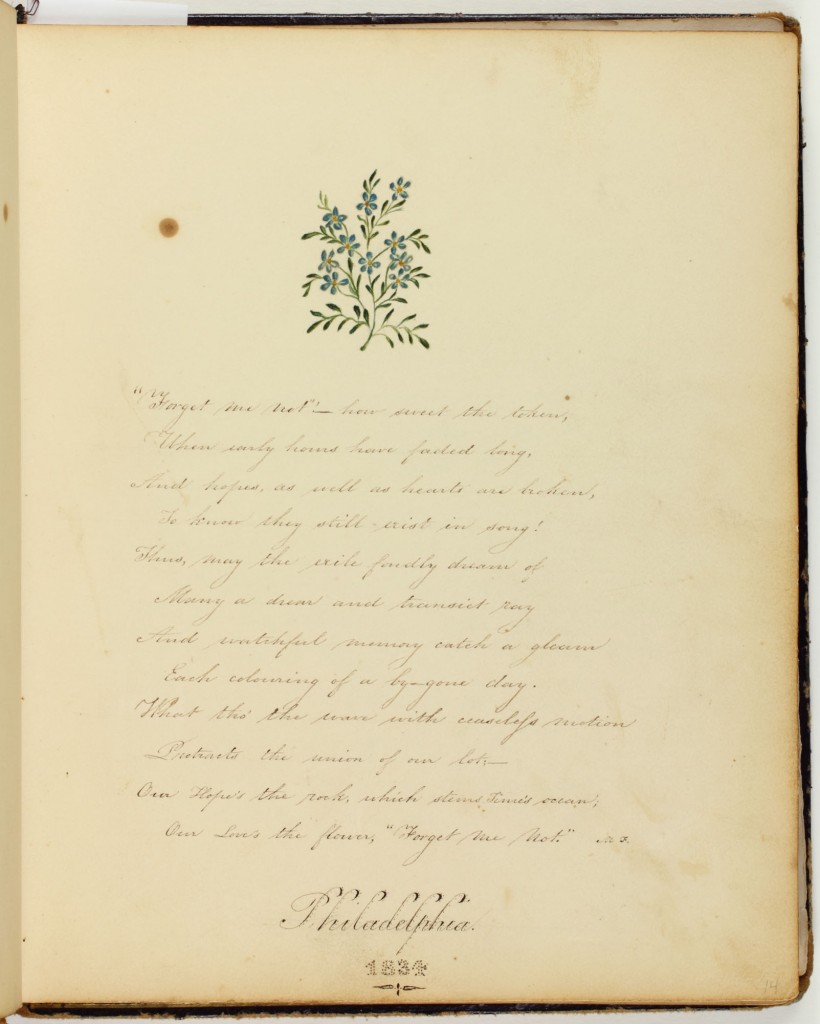 "Forget me not"!— how sweet the token,
When early hours have faded long,
And hopes, as well as hearts are broken,
To know they still exist in song!
Thus, may the exile fondly dream of
Many a dear and transiet ray
And watchful memory catch a gleam
Each colouring of a by-gone day.
What tho' the wave with ceaseless motion
Protracts the union of our lot;—
Our Hope's the rock, which stems Time's ocean,
Our Love's the flower, "Forget Me Not." M. F.
Philadelphia.
1834
14